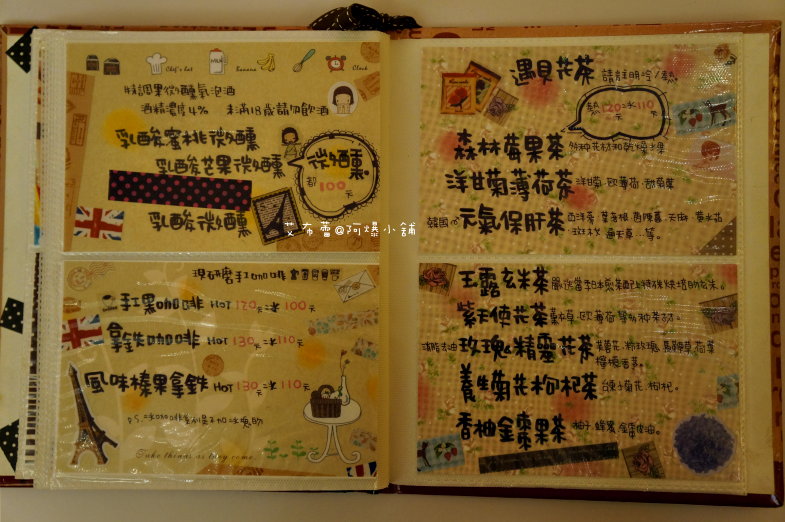 Chef's hat
MILK
banana
Clock
水調果微醺氣泡酒
酒精濃度4% 未滿18歲請勿飲酒
乳酸蜜桃微醺
乳酸芒果微醺
乳酸微醺
微醺
都100元
艾布蕾@阿爆小舖
現研磨手工咖啡
手工黑咖啡 HOT 120元 冰100元
拿鐵咖啡 HOT 130元 冰110元
風味榛果拿鐵 HOT 130元 冰110元
P.S. 冰咖啡系列是不加冰塊的
Take things as they come
遇見花茶 請註明冷/熱
熱120元 冰110元
森林莓果茶 多种花材和乾燥水果
洋甘菊薄荷茶 洋甘菊.歐薄荷.甜菊葉
韓國
元氣保肝茶
玉露玄米茶
紫天使花茶 薰衣草.歐薄荷等多种茶材。
玫瑰精靈花茶
檸檬香茅。
養生菊花枸杞茶 台東菊花.枸杞。
香柚金棗果茶 柚子.蜂蜜.金棗原油。